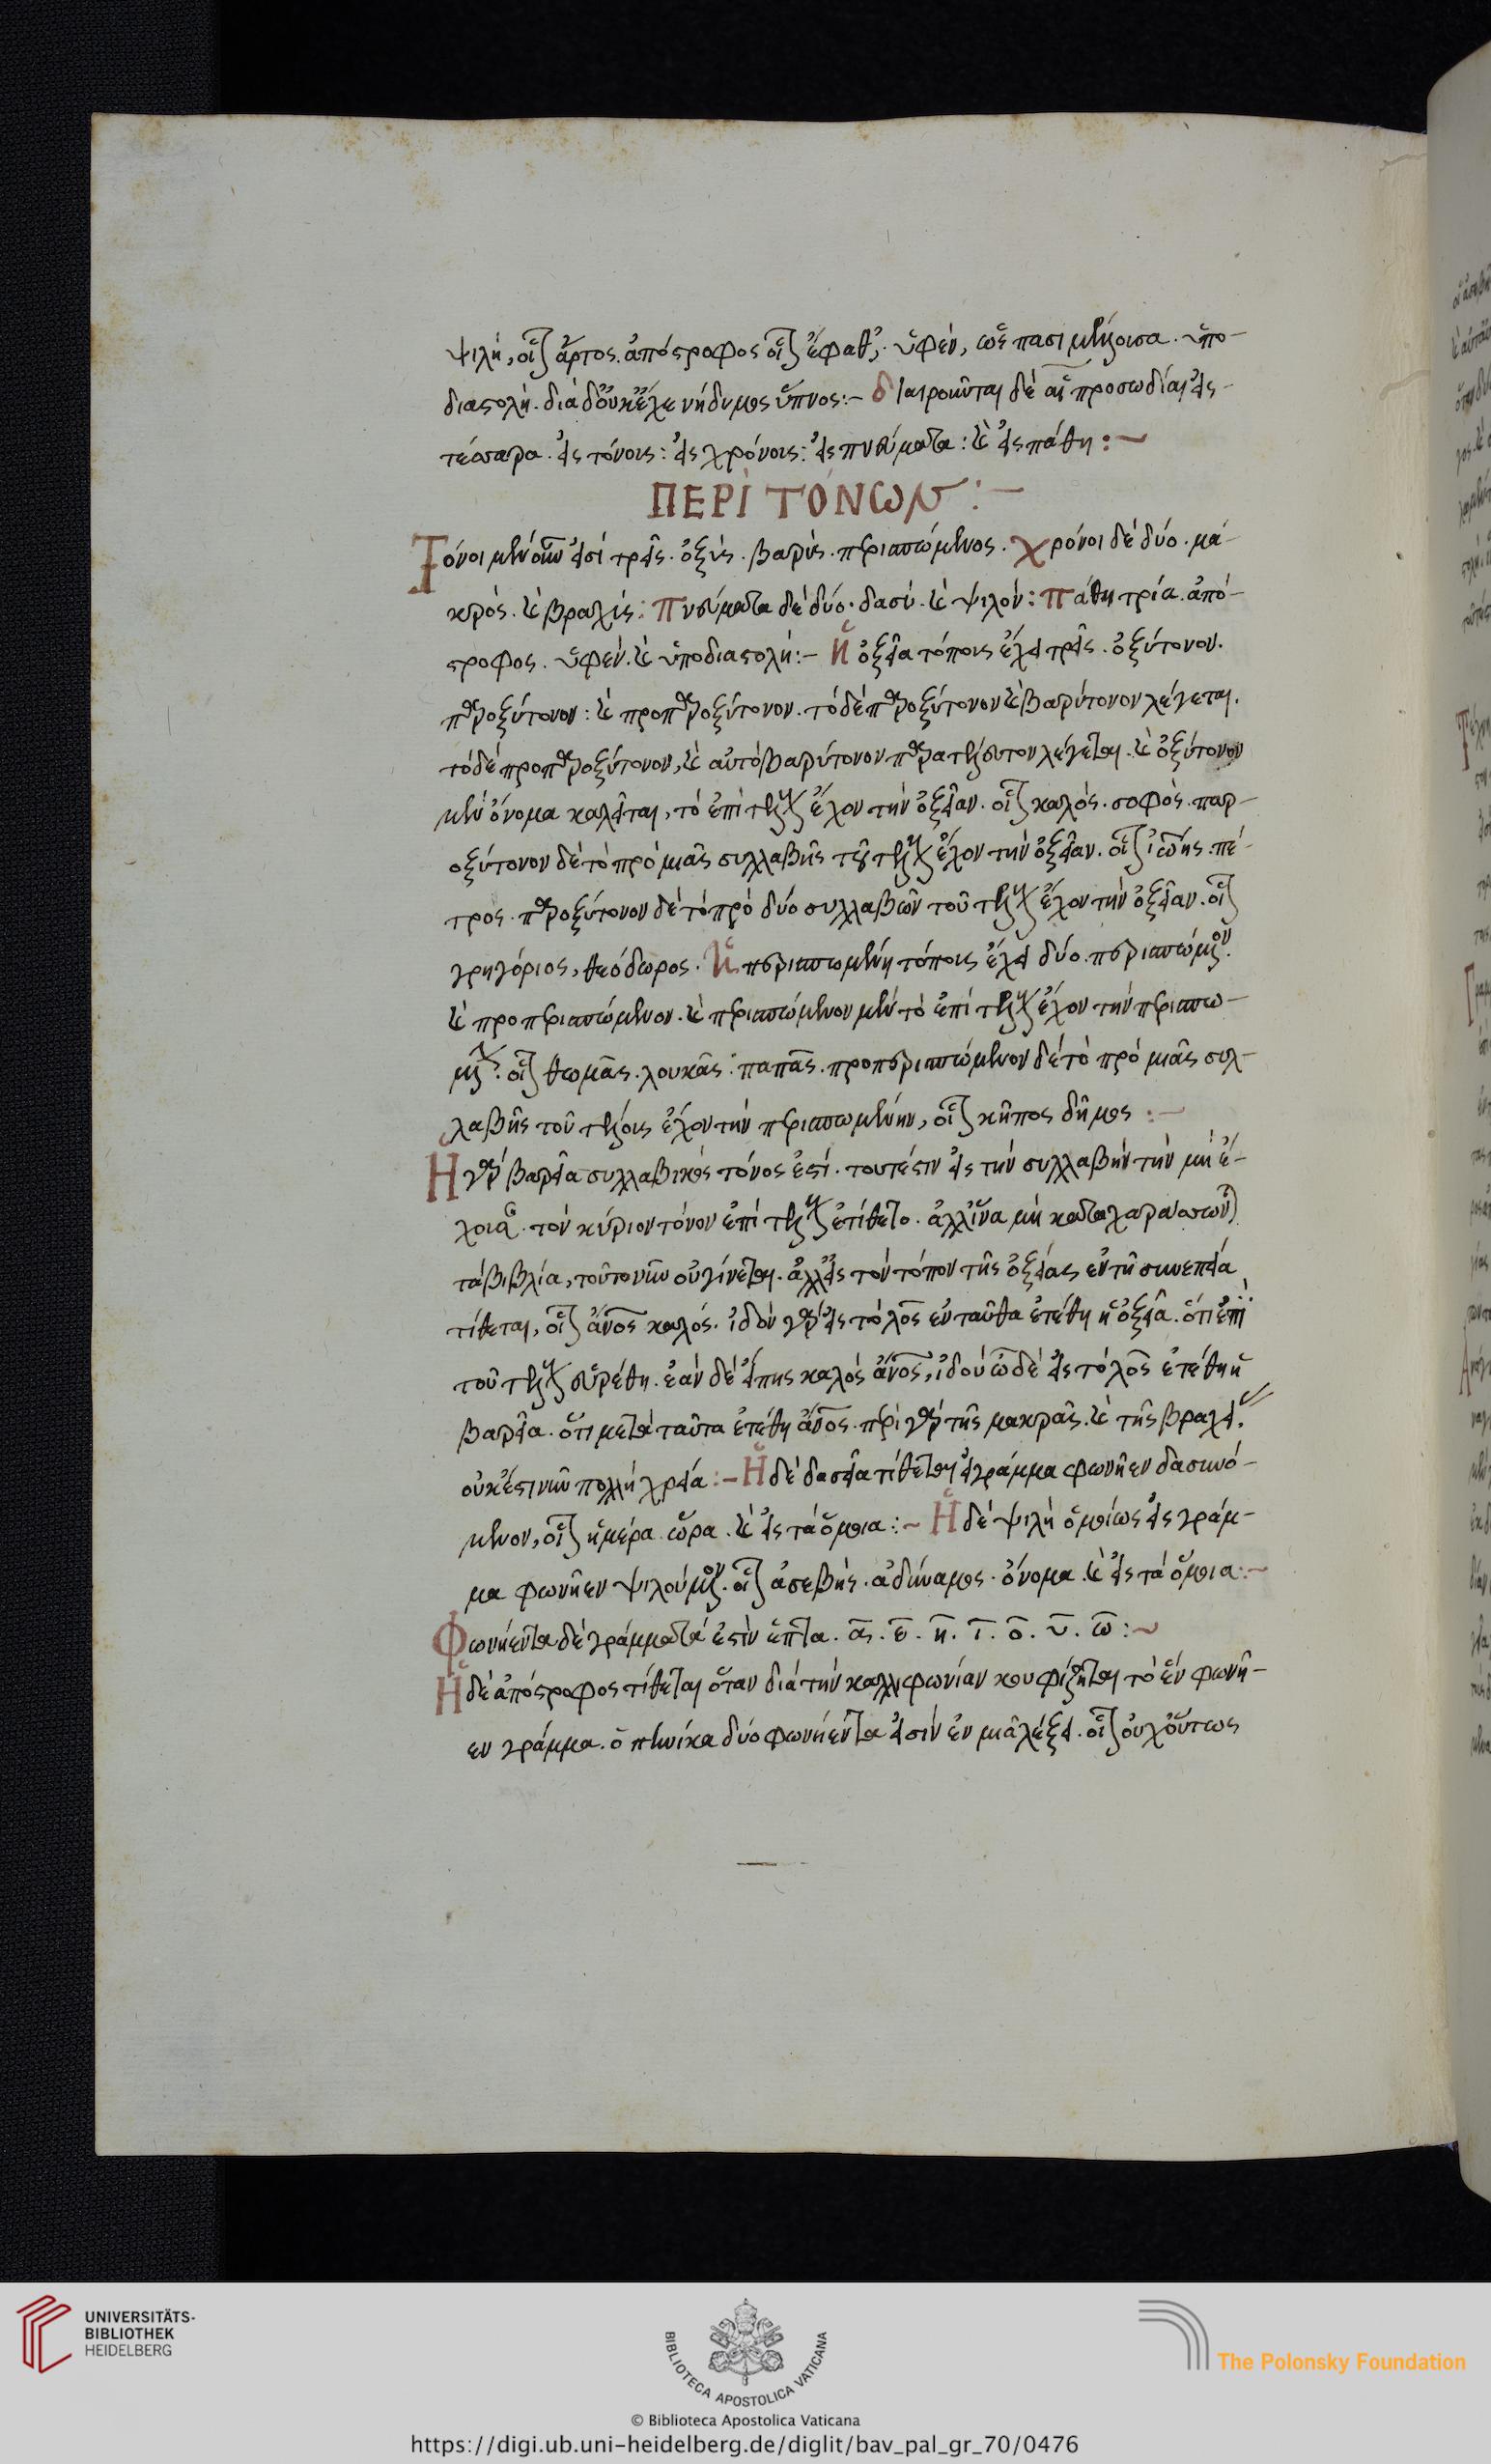 ψιλή, οἷον ἄρτος. ἀπόστροφος οἷον ἔφατ᾽, ὑφέν, ὡς πασιμέλουσα. ὑπο-
διαστολή. διὰ δ᾽ οὐκ ἔχε νήδυμος ὕπνος:- διαιροῦνται δὲ αἱ προσωδίαι εἰς
τέσσαρα. εἰς τόνους: εἰς χρόνους: εἰς πνεύματα: καὶ εἰς πάθη:~
ΠΕΡῚ ΤΌΝΩΝ:-
Τόνοι μὲν οὖν εἰσὶ τρεῖς. ὀξύς. βαρύς. περισπώμενος. χρόνοι δὲ δύο. μα-
κρός. καὶ βραχύς: πνεύματα δὲ δύο. δασύ. καὶ ψιλόν: πάθη τρία. ἀπό-
στροφος. ὑφέν. καὶ ὑποδιαστολή:- ἡ ὀξεῖα τόπους ἔχει τρεῖς. ὀξύτονον.
παροξύτονον: καὶ προπαροξύτονον. τὸ δὲ παροξύτονον καὶ βαρύτονον λέγεται.
τὸ δὲ προπαροξύτονον, καὶ αὐτὸ βαρύτονον παρατέλευτον λέγεται. καὶ ὀξύτονον
μὲν ὄνομα καλεῖται, τὸ ἐπὶ τέλους ἔχον τὴν ὀξεῖαν. οἷον καλός. σοφός. παρ-
οξύτονον δὲ τὸ πρὸ μιᾶς συλλαβῆς τοῦ τέλους ἔχον τὴν ὀξεῖαν. οἷον ἰωάννης. πέ-
τρος. παροξύτονον δὲ τὸ πρὸ δύο συλλαβῶν τοῦ τέλους ἔχον τὴν ὀξεῖαν. οἷον
γρηγόριος, θεόδωρος. ἡ περισπωμένη τόπους ἔχει δύο. περισπώμενον.
καὶ προπερισπώμενον. καὶ περισπώμενον μὲν τὸ ἐπὶ τέλους ἔχον τὴν περισπω-
μένην. οἷον θωμᾶς. λουκᾶς. παπᾶς. προπερισπώμενον δὲ τὸ πρὸ μιᾶς συλ-
λαβῆς τοῦ τέλους ἔχον τὴν περισπωμένην, οἷον κῆπος δῆμος:-
Ἡ γὰρ βαρεῖα συλλαβικὸς τόνος ἐστί. τουτέστιν εἰς τὴν συλλαβὴν τὴν μὴ ἔ-
χουσαν τὸν κύριον τόνον ἐπὶ τέλους ἐτίθετο. ἀλλ᾽ ἵνα μὴ καταχαράσσωνται
τὰ βιβλία, τοῦτο νῦν οὐ γίνεται. ἀλλ᾽ εἰς τὸν τόπον τῆς ὀξείας ἐν τῇ συνεπεία
τίθεται, οἷον ἄνος καλός. ἰδοὺ γὰρ εἰς τὸ λος ἐνταῦθα ἐτέθη ἡ ὀξεῖα. ὅτι ἐπὶ
τοῦ τέλους εὑρέθη. ἐὰν δὲ εἴπης καλὸς ἄνος, ἰδοὺ ὧδε εἰς τὸ λος ἐτέθη ἡ
βαρεῖα. ὅτι μετὰ ταῦτα ἐτέθη ἄνος. περὶ γὰρ τῆς μακρᾶς. καὶ τῆς βραχείας
οὐκ ἔστι νῦν πολλὴ χρεία:- Ἡ δὲ δασεῖα τίθεται εἰς γράμμα φωνῆεν δασυνό-
μενον, οἷον ἡμέρα. ὥρα. καὶ εἰς τὰ ὅμοια:- Ἡ δὲ ψιλὴ ὁμοίως εἰς γράμ-
μα φωνῆεν ψιλούμενον. οἷον ἀσεβής. ἀδύναμος. ὄνομα. καὶ εἰς τὰ ὅμοια:-
Φωνήεντα δὲ γράμματά ἐστιν ἑπτά. α. ε. η. ι. ο. υ. ω:~
Ἡ δὲ ἀπόστροφος τίθεται ὅταν διὰ τὴν καλλιφωνίαν κουφίζηται τὸ ἓν φωνῆ-
εν γράμμα. ὁπηνίκα δύο φωνήεντά εἰσιν ἐν μιᾶ λέξει. οἷον οὐχ οὕτως
UNIVERSITÄTS-
BIBLIOTHEK
HEIDELBERG
BIBLIOTECA APOSTOLICA VATICANA
The Polonsky Foundation
© Biblioteca Apostolica Vaticana
https://digi.ub.uni-heidelberg.de/diglit/bav_pal_gr_70/0476